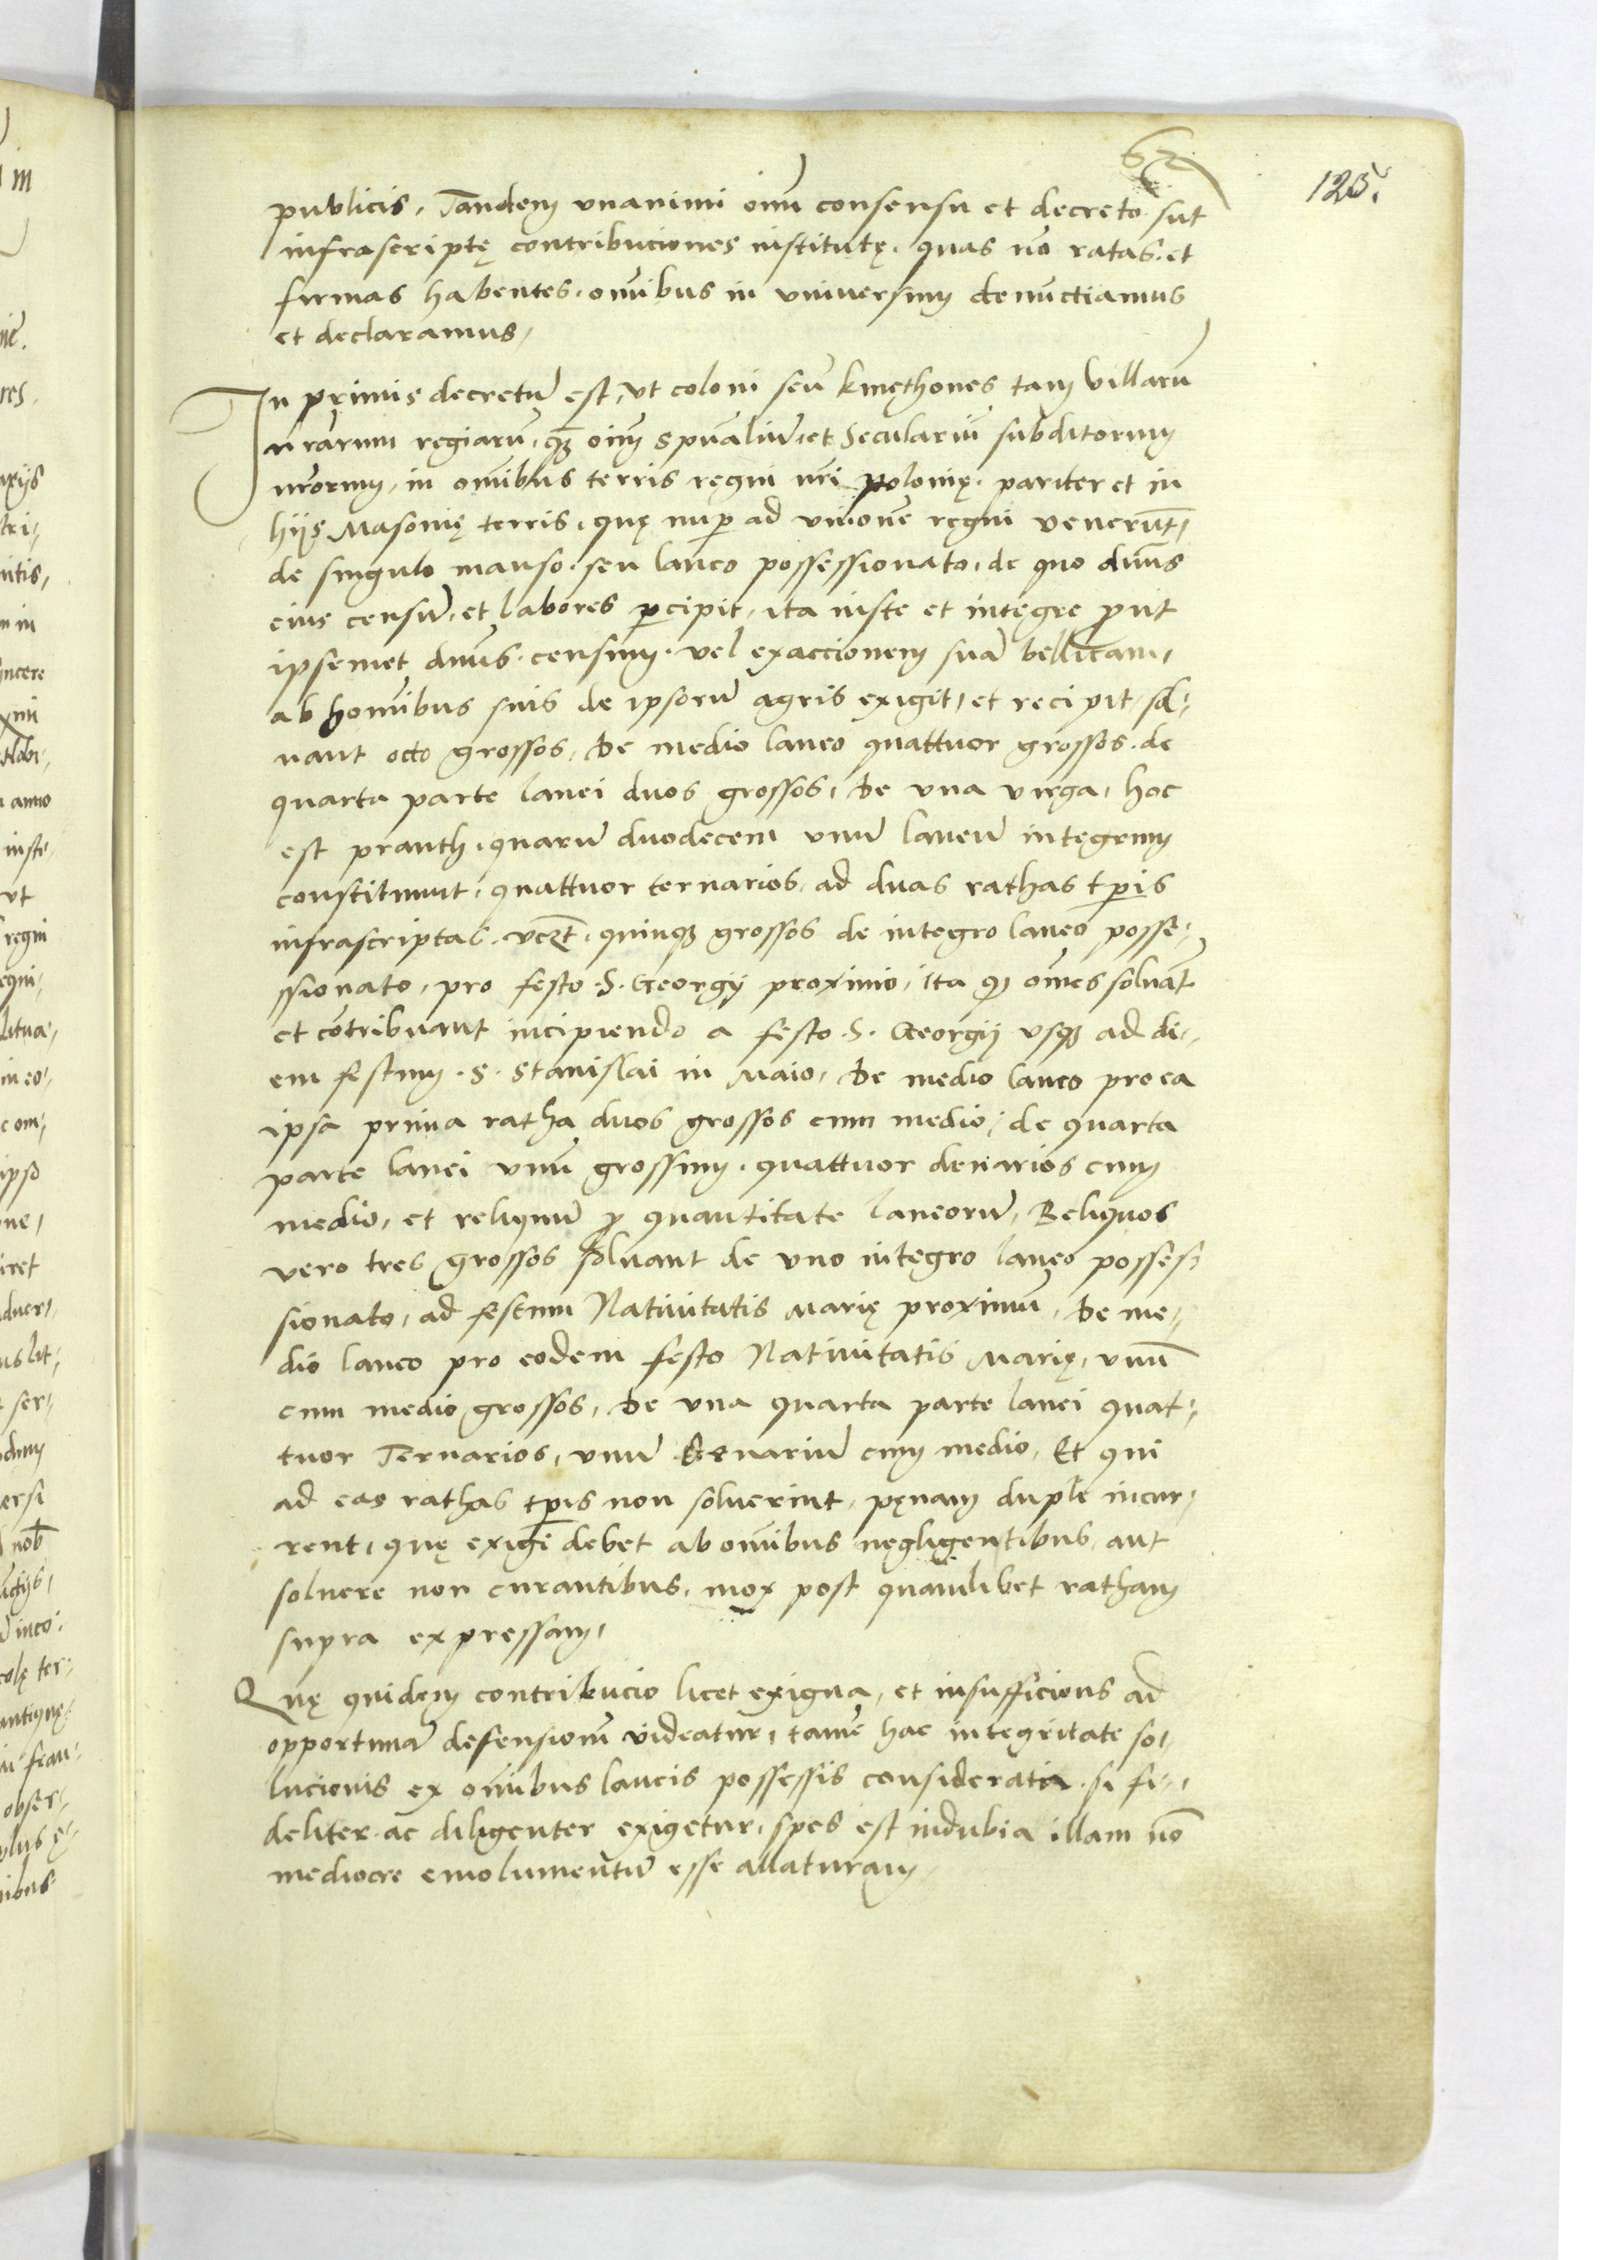 62
125.
publicis, Tandem vnanimi oim̄ consensu et decreto su̅t
infrascriptę contribuciones institutę. quas nō ratas. et
firmas habentes. omn̄ibus in vniuersum denu̅ctiamus
et declaramus,
In primis decretū est, vt coloni seu kmęthones tam villarū
nrārum regiarū, qȝ oīm spūaliū et Seculariū subditorum
nrōrum, in omn̄ibus terris ręgni nrī polonię. pariter et in
hijs Masonię terris. quę nup̱ ad vnionē ręgni venerūt,
de singulo manso. seu laneo possessionato, de quo dn̄us
eius censū, et labores p̱cipit, ita iuste et integre ꝓut
ipsemet dn̄us. censum. vel exaccionem suā bellicam,
ab homīnibus suis de ipsorū agris exigit, et recipit, sol-
uant octo grossos, De medio laneo quattuor grossos. de
quarta parte lanei duos grossos, De vna virga, hoc
est pranth. quarū duodecem vnū laneū integrum
constituunt, quattuor ternarios, ad duas rathas tp̱is
infrascriptas. vczt, quinqȝ grossos de integro laneo posse-
ssionato, pro festo S. Georgij proximo, Ita qꝫ omēs soluāt
et cōtribuant incipiendo a festo S. Georgij vsqȝ ad di-
em festum S. Stanislai in Maio, De medio laneo pro ea
ipsa prima ratha duos grossos cum medio, de quarta
parte lanei vnū grossum. quattuor denarios cum
medio, et reliquū ꝓ quantitate laneorū, Reliquos
vero tres grossos soluant de vno integro laneo posses-
sionato, ad festum Natiuitatis Marię proximū, De me-
dio laneo pro eodem festo Natiuitatis Marię, vnū
cum medio grossos, De vna quarta parte lanei quat-
tuor Ternarios, vnū denariū cum medio, Et qui
ad eas rathas tp̱is non soluerint, pęnam duplę incur-
rent, quę exigi debet ab omn̄ibus negligentibus, aut
soluere non curantibus, mox post quamlibet ratham
supra expressam,
Quę quidem contribucio licet exigua, et insufficiens ad
opportunā defensionem videatur, tamē hac integritate so-
lucionis ex omn̄ibus laneis possessis considerata. si fi-
deliter. ac diligenter exigetur, spes est indubia illam nō
mediocre emolumentū esse allaturam,